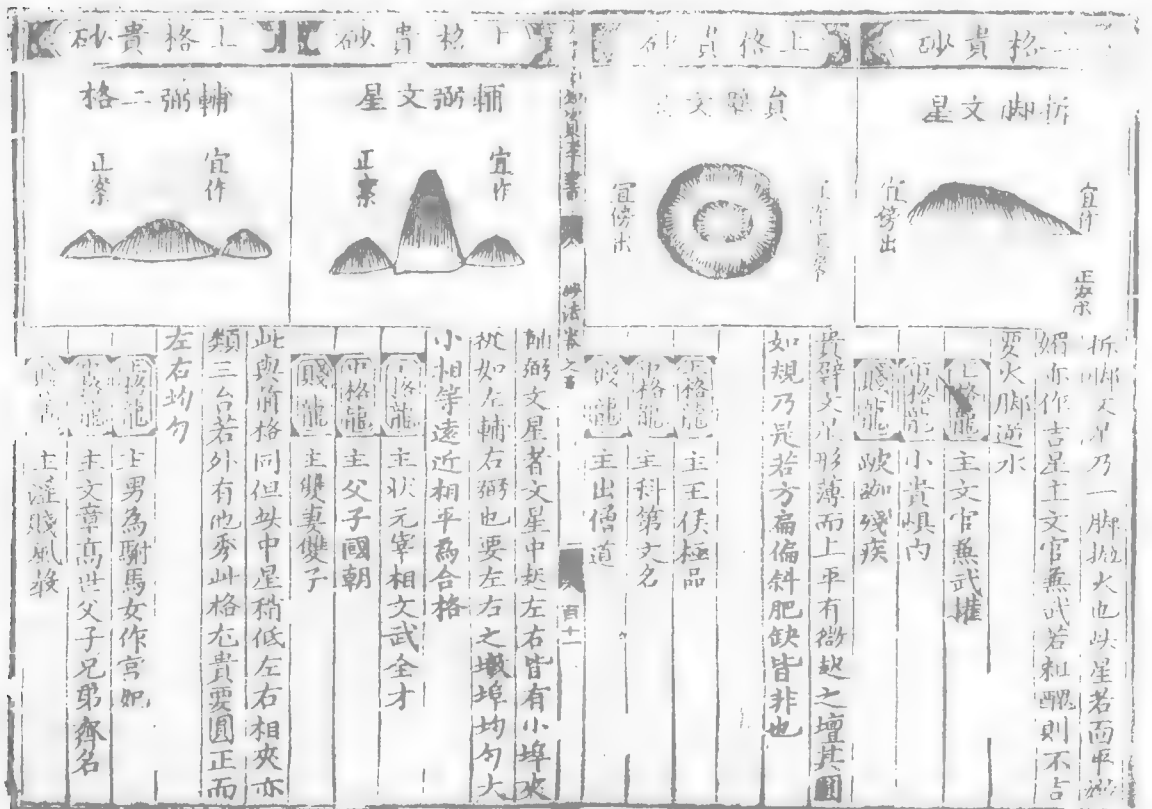 格貴砂
折脚文星
宜作
正案
宜傍出
折脚文星乃一脚拋火也此星若面平
媚亦作吉星主文官兼武若粗醜則不吉
要火脚逆水
上格龍 主文官兼武權
中格龍 小貴懼內
賤龍 跛跏殘疾
上格貴砂
璧文
宜傍出
璧文星形薄而上平有微起之壇其圓
如規乃是若方扁偏斜肥缺皆非也
上格龍 主王侯極品
中格龍 主科第文名
賤龍 主出僧道
須知資孝書
砂法卷之
百十一
上格貴砂
輔弼文星
宜作
正案
輔弼文星者文星中起左右皆有小埠夾
從如左輔右弼也要左右之墩埠均勻大
小相等遠近相平為合格
上格龍 主狀元宰相文武全才
中格龍 主父子國朝
賤龍 主雙妻雙子
上格貴砂
輔弼二格
宜作
正案
此與前格同但無中星稍低左右相夾亦
類三台若外有他秀此格尤貴要圓正而
左右均勻
上格龍 主男為駙馬女作宮妃
中格龍 主文章高世父子兄弟齊名
賤龍 主淫賤風聲